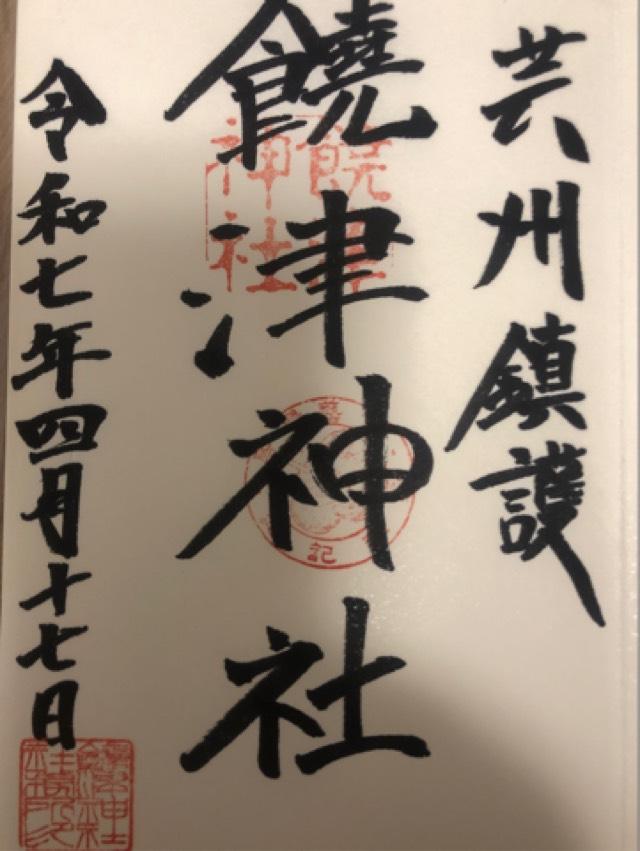 芸州鎮護
饒津神社
令和七年四月十七日
饒津
神社
記